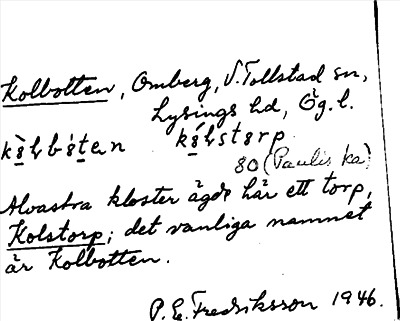 Kolbotten, Omberg, V. Tollstad sn,
Lysings hd, Ög. l.
kòḷbóten kóḷstorp
80 (Paulis ka)
Alvastra kloster ägde här ett torp,
Kolstorp; det vanliga namnet
är Kolbotten.
P. E. Fredriksson 1946.